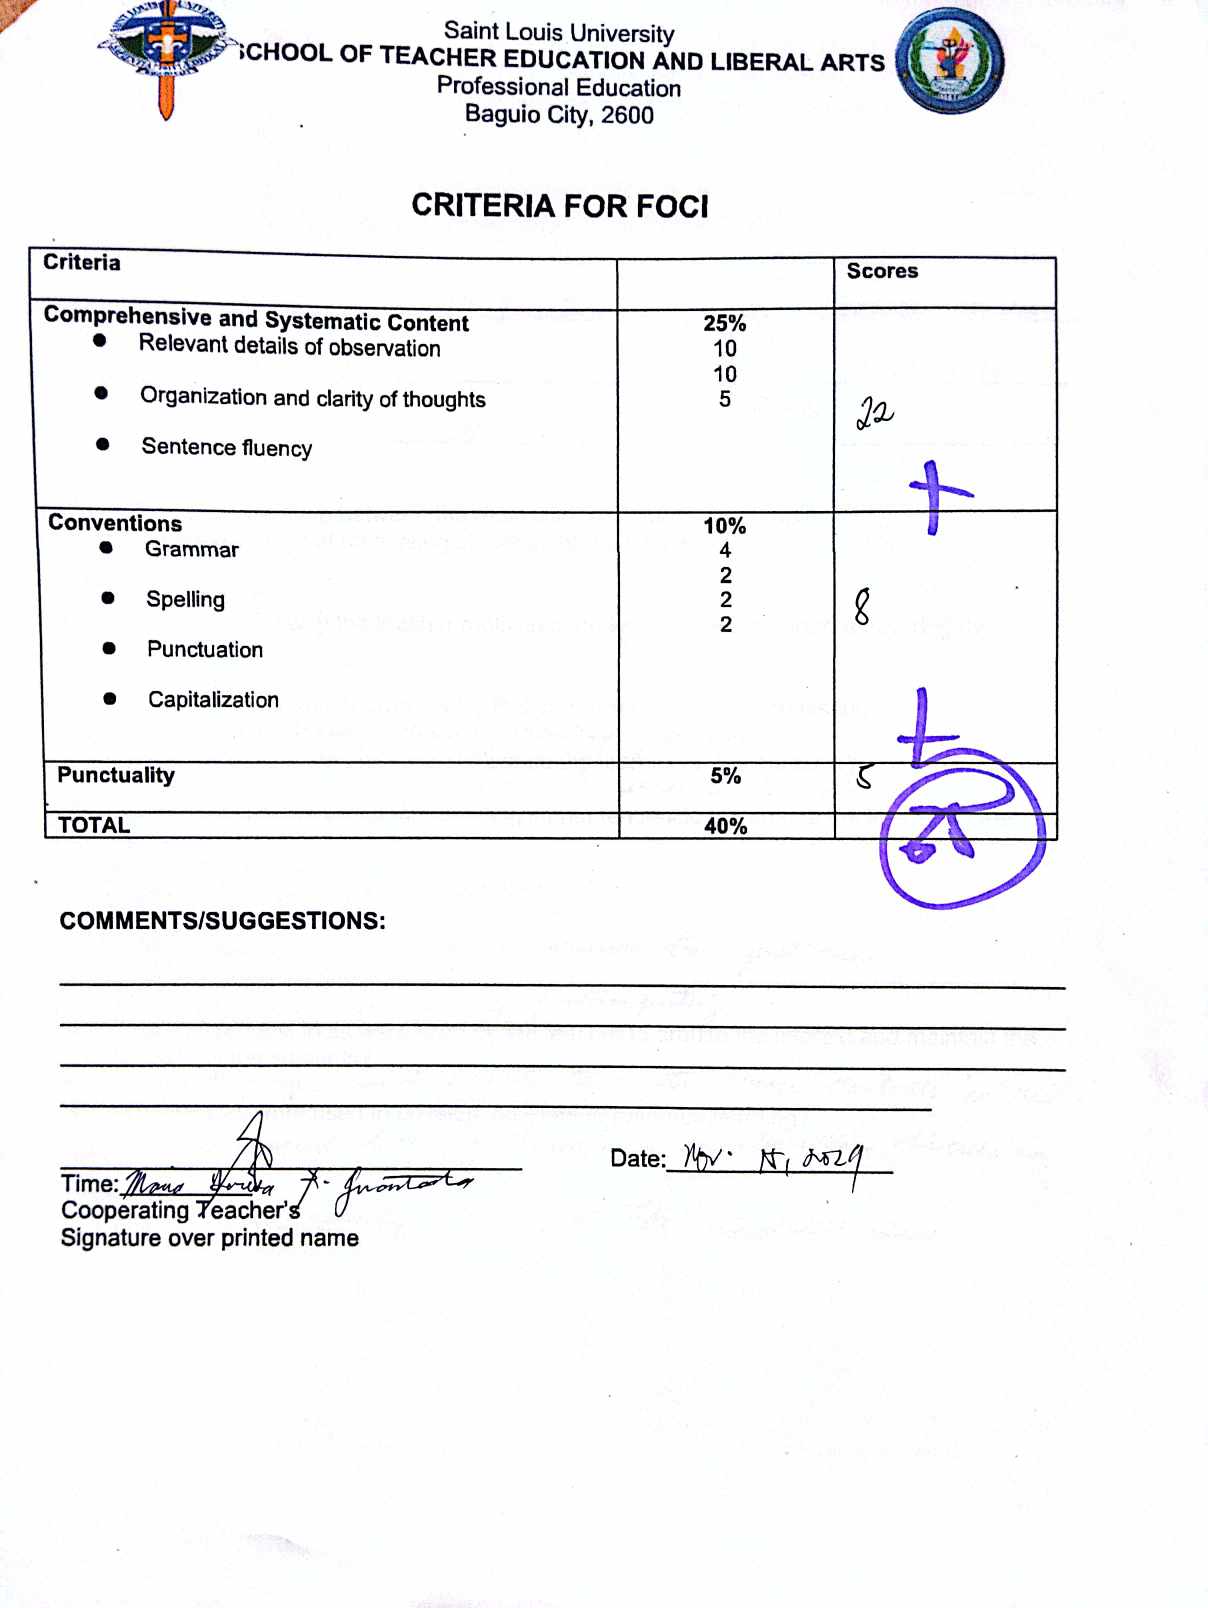 Saint Louis University
SCHOOL OF TEACHER EDUCATION AND LIBERAL ARTS
Professional Education
Baguio City, 2600
CRITERIA FOR FOCI
Criteria Scores
Comprehensive and Systematic Content 25%
● Relevant details of observation 10
10
● Organization and clarity of thoughts 5
22
● Sentence fluency
+
Conventions 10%
● Grammar 4
2
● Spelling 2 8
2
● Punctuation
● Capitalization
+
Punctuality 5% 5
TOTAL 40%
COMMENTS/SUGGESTIONS:
Date: Nov.
Time:
Cooperating Teacher's
Signature over printed name